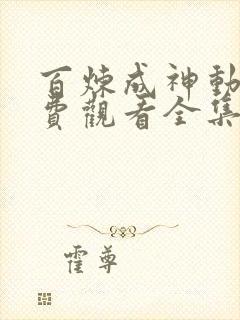 百炼成神動
費觀看全集
霍尊